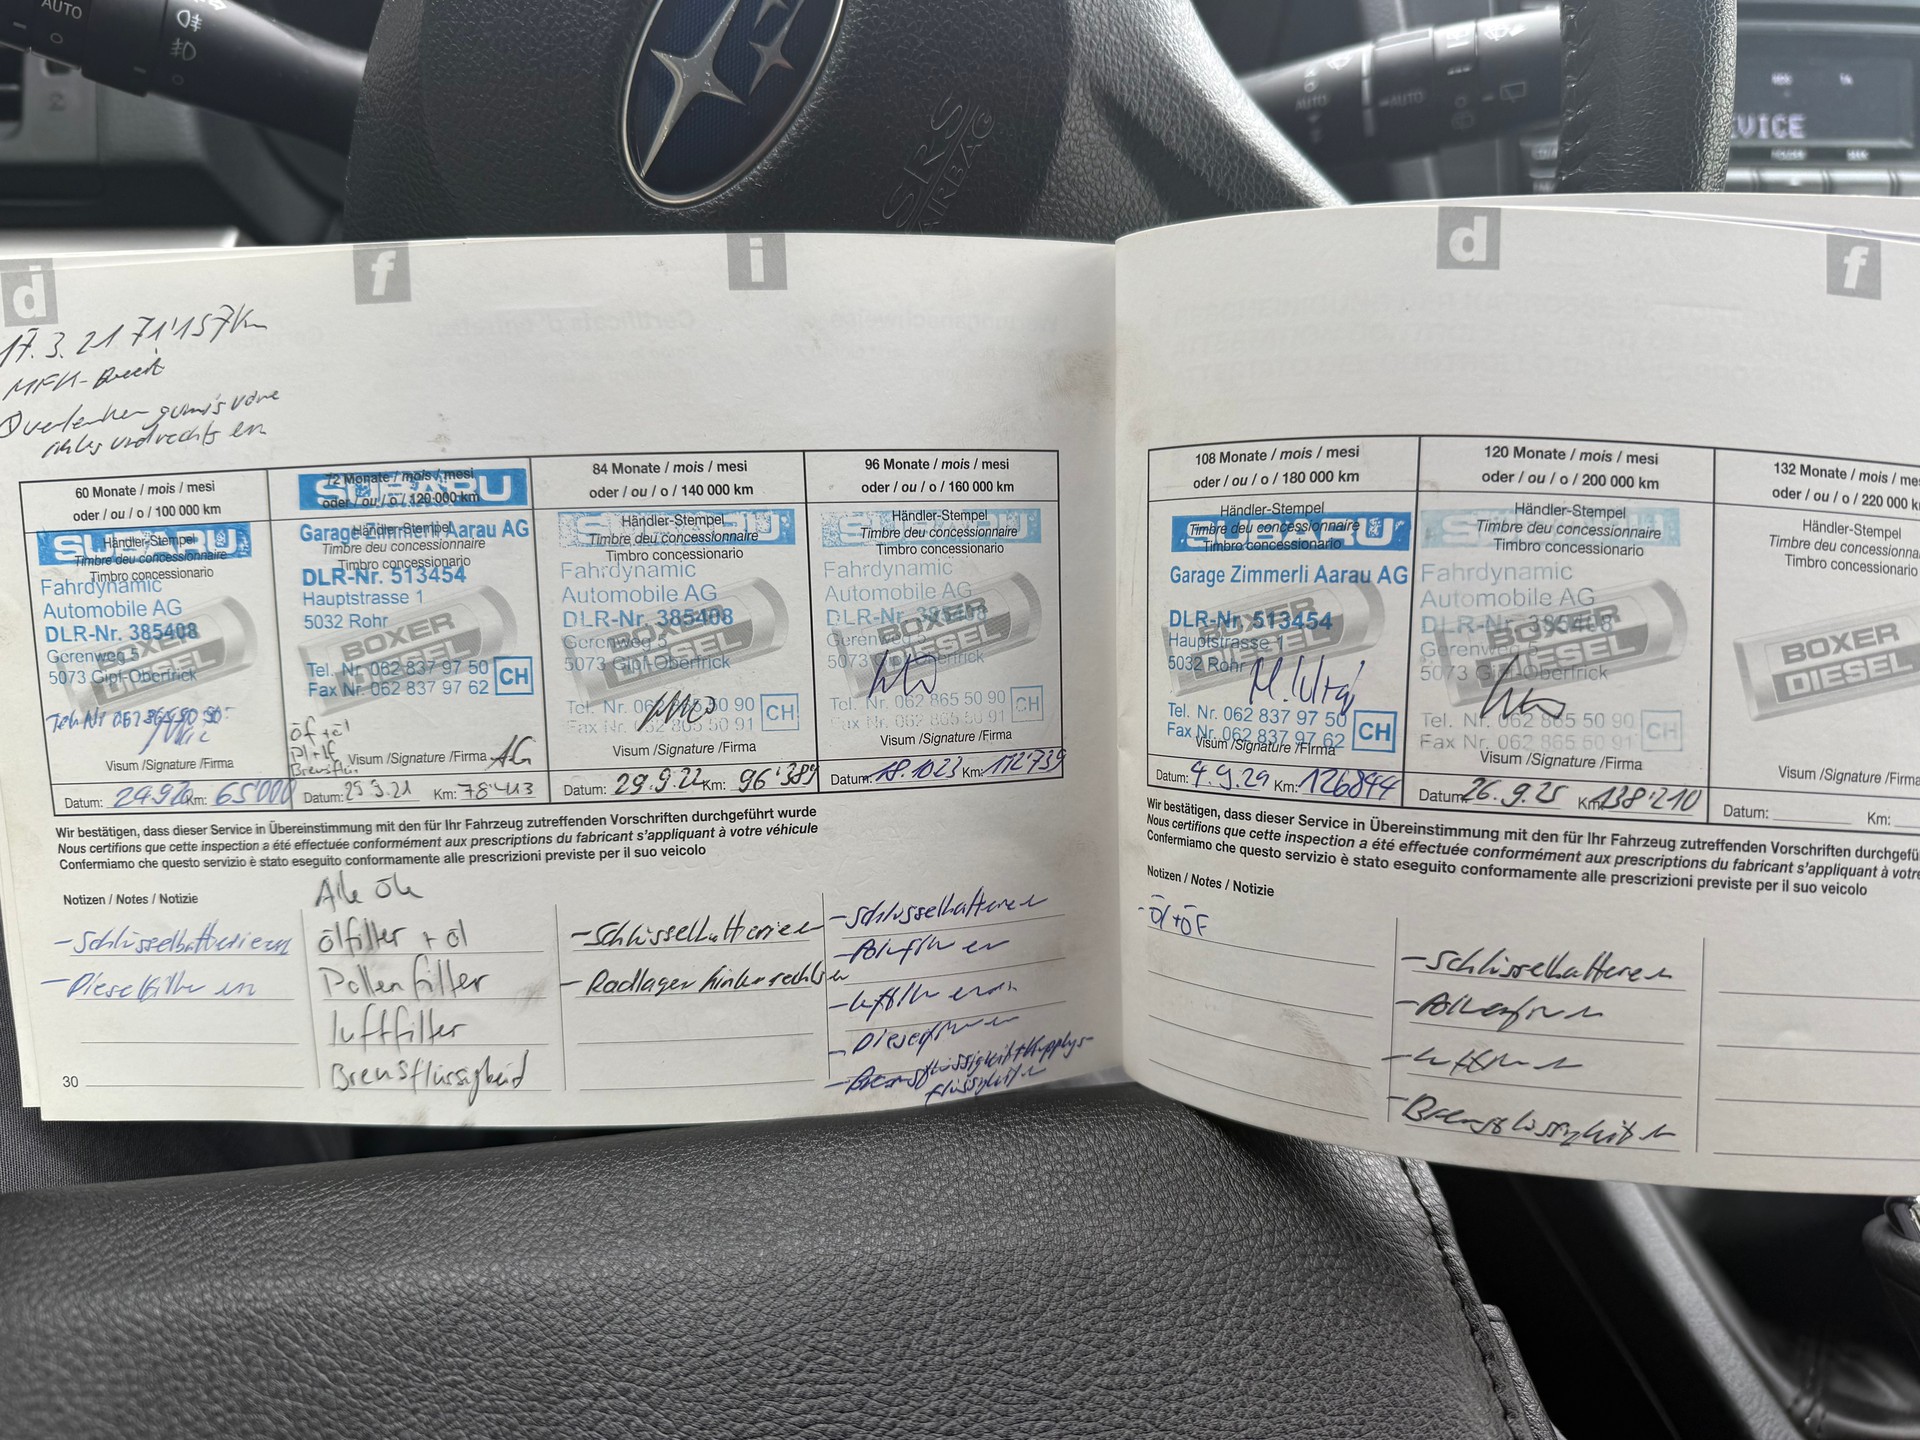 AUTO
O
2
SRS
AIRBAG
AUTO
AUTO
VICE
d
f
i
17.3.21 71'157km
MFK-Bereit
Querlenker gumis vorne
links und rechts en
60 Monate / mois / mesi
oder / ou / o / 100 000 km
SUBARU
Händler-Stempel
Timbre deu concessionnaire
Timbro concessionario
Fahrdynamic
Automobile AG
DLR-Nr. 385408
Gerenweg 5
5073 Gipf-Oberfrick
BOXER
DIESEL
Visum /Signature /Firma
Datum: 29.9.20 Km: 65'000
72 Monate / mois / mesi
oder / ou / o / 120 000 km
SUBARU
Händler-Stempel
Garage Zimmerli Aarau AG
Timbre deu concessionnaire
Timbro concessionario
DLR-Nr. 513454
Hauptstrasse 1
5032 Rohr
BOXER
DIESEL
Tel. Nr. 062 837 97 50
Fax Nr. 062 837 97 62
CH
Visum /Signature /Firma
Datum: 25.3.21 Km: 78'413
84 Monate / mois / mesi
oder / ou / o / 140 000 km
SUBARU
Händler-Stempel
Timbre deu concessionnaire
Timbro concessionario
Fahrdynamic
Automobile AG
DLR-Nr. 385408
Gerenweg 5
5073 Gipf-Oberfrick
BOXER
DIESEL
Tel. Nr. 062 865 50 90
Fax Nr. 062 865 50 91
CH
Visum /Signature /Firma
Datum: 29.9.22 Km: 96'389
96 Monate / mois / mesi
oder / ou / o / 160 000 km
SUBARU
Händler-Stempel
Timbre deu concessionnaire
Timbro concessionario
Fahrdynamic
Automobile AG
DLR-Nr. 385408
Gerenweg 5
5073 Gipf-Oberfrick
BOXER
DIESEL
Tel. Nr. 062 865 50 90
Fax Nr. 062 865 50 91
CH
Visum /Signature /Firma
Datum: 18.10.23 Km: 112'739
Wir bestätigen, dass dieser Service in Übereinstimmung mit den für Ihr Fahrzeug zutreffenden Vorschriften durchgeführt wurde
Nous certifions que cette inspection a été effectuée conformément aux prescriptions du fabricant s'appliquant à votre véhicule
Confermiamo che questo servizio è stato eseguito conformamente alle prescrizioni previste per il suo veicolo
Notizen / Notes / Notizie
-Schlüsselbatterien
-Dieselfilter en
Alle
Ölfilter + öl
Pollenfilter
luftfilter
Bremsflüssigkeid
-Schlüsselbatterien
-Radlager hinten rechts en
-Schlüsselbatterien
-Bremsflüssigkeit + Kupplungs-
flüssigkeit en
30
d
f
108 Monate / mois / mesi
oder / ou / o / 180 000 km
Händler-Stempel
Timbre deu concessionnaire
Timbro concessionario
SUBARU
Garage Zimmerli Aarau AG
DLR-Nr. 513454
Hauptstrasse 1
5032 Rohr
BOXER
DIESEL
Tel. Nr. 062 837 97 50
Fax Nr. 062 837 97 62
CH
Visum /Signature /Firma
Datum: 4.9.24 Km: 126844
120 Monate / mois / mesi
oder / ou / o / 200 000 km
Händler-Stempel
Timbre deu concessionnaire
Timbro concessionario
SUBARU
Fahrdynamic
Automobile AG
DLR-Nr. 385408
Gerenweg 5
5073 Gipf-Oberfrick
BOXER
DIESEL
Tel. Nr. 062 865 50 90
Fax Nr. 062 865 50 91
CH
Visum /Signature /Firma
Datum: 26.9.25 Km: 138'210
132 Monate / mois / me
oder / ou / o / 220 000 k
Händler-Stempel
Timbre deu concessionna
Timbro concessionario
BOXER
DIESEL
Visum /Signature /Firma
Datum: Km:
Wir bestätigen, dass dieser Service in Übereinstimmung mit den für Ihr Fahrzeug zutreffenden Vorschriften durchgefü
Nous certifions que cette inspection a été effectuée conformément aux prescriptions du fabricant s'appliquant à votre
Confermiamo che questo servizio è stato eseguito conformamente alle prescrizioni previste per il suo veicolo
Notizen / Notes / Notizie
-Öl+ÖF
-Schlüsselbatterien
-Bremsflüssigkeit en